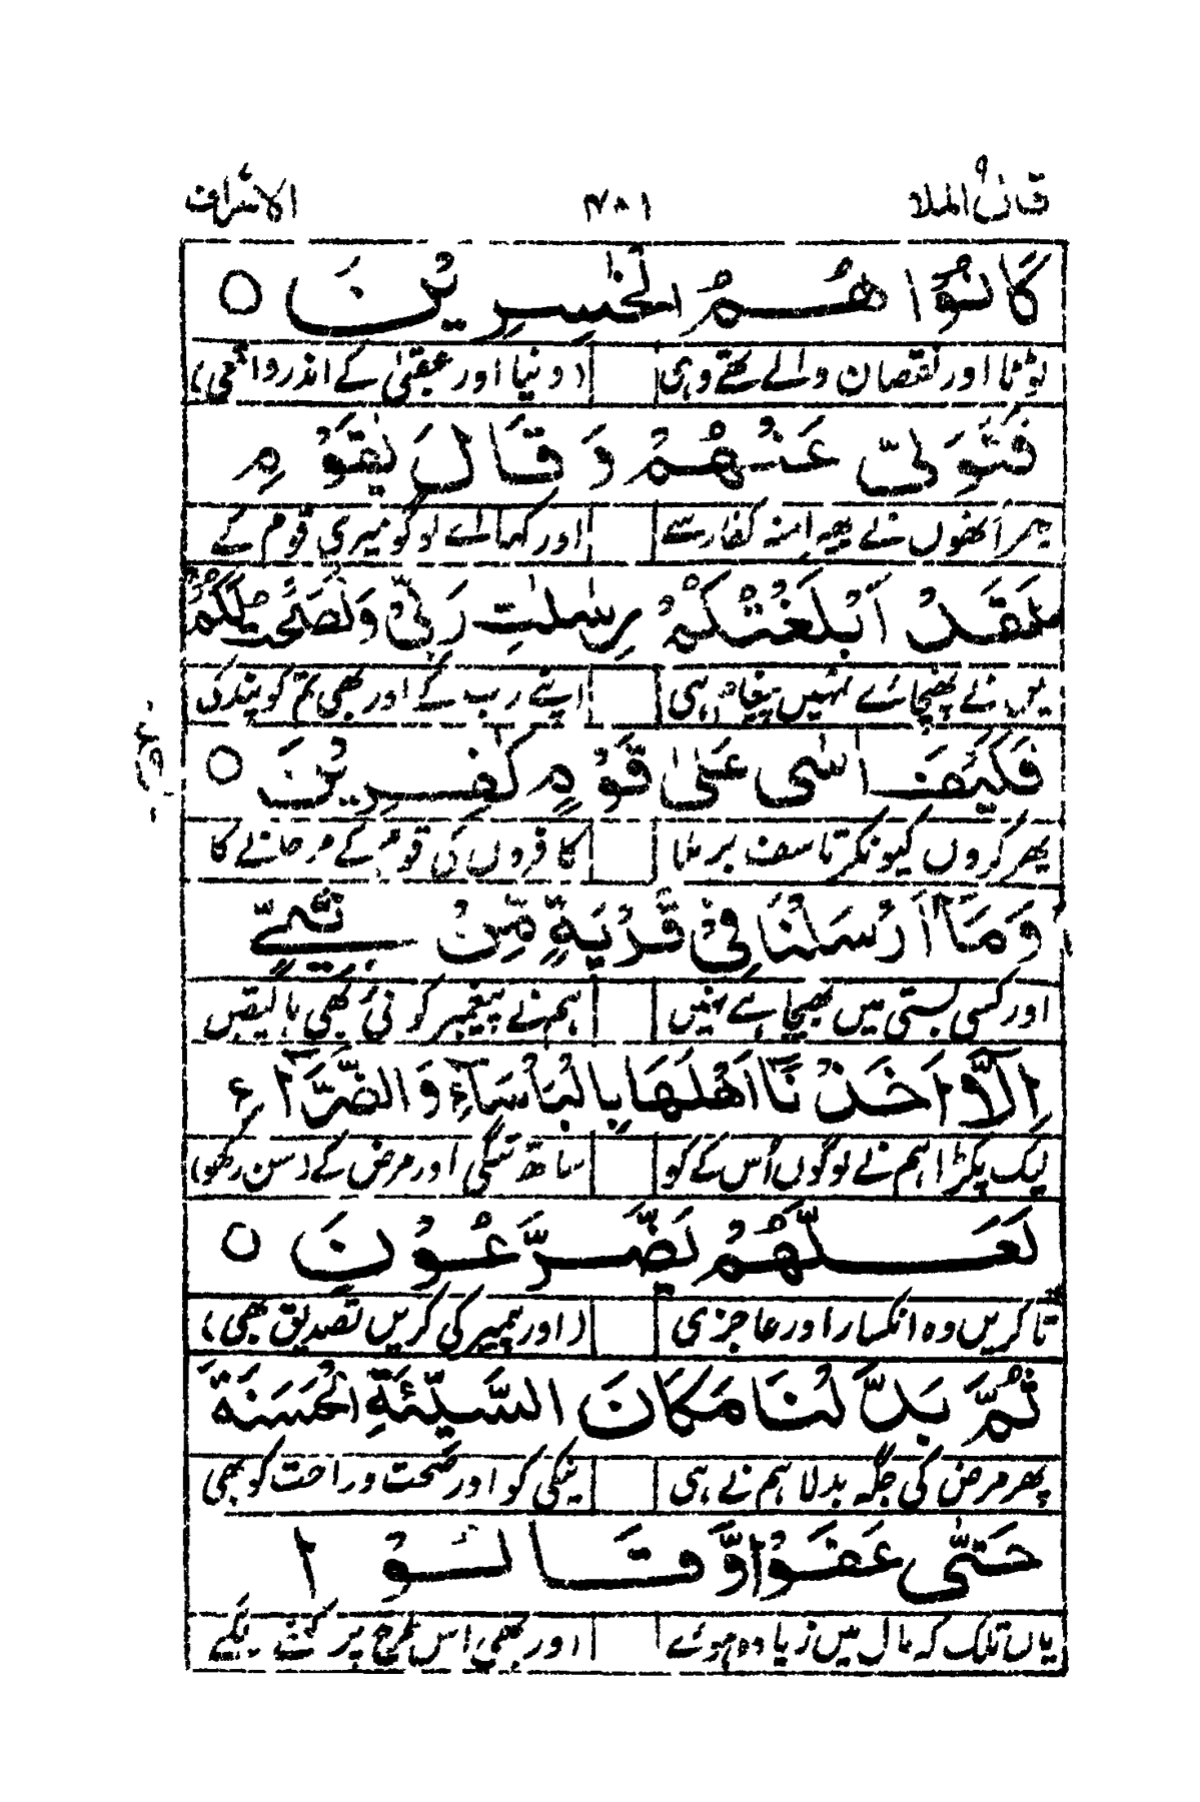 قال الملا ۹ ۴۸۱ الاعراف
كَانُوْا هُمُ الْخٰسِرِيْنَ ۝
ٹوٹا اور نقصان والے تھے وہی (دنیا اور عقبیٰ کے اندر واقعی)
فَتَوَلّٰى عَنْهُمْ وَقَالَ يٰقَوْمِ
پھر اُنھوں نے پھیرا منہ کفار سے اور کہا اے لوگو میری قوم کے
لَقَدْ اَبْلَغْتُكُمْ رِسٰلٰتِ رَبِّيْ وَنَصَحْتُ لَكُمْ
میں نے پہنچائے تمہیں پیغام ہی اپنے رب کے اور بھی تم کو پند کی
فَكَيْفَ اٰسٰى عَلٰى قَوْمٍ كٰفِرِيْنَ ۝
پھر کروں کیونکر تاسف برملا کافروں کی قوم کے مرجانے کا
وَمَآ اَرْسَلْنَا فِيْ قَرْيَةٍ مِّنْ نَّبِيٍّ
اور کسی بستی میں بھیجا ہے نہیں ہم نے پیغمبر کوئی بھی بالیقیں
اِلَّآ اَخَذْنَآ اَهْلَهَا بِالْبَاْسَآءِ وَالضَّرَّآءِ
لیک پکڑا ہم نے لوگوں اُس کے کو ساتھ تنگی اور مرض کے (سن رکھو)
لَعَلَّهُمْ يَضَّرَّعُوْنَ ۝
تا کریں وہ انکسار اور عاجزی (اور پیمبر کی کریں تصدیق بھی)
ثُمَّ بَدَّلْنَا مَكَانَ السَّيِّئَةِ الْحَسَنَةَ
پھر مرض کی جگہ بدلا ہم نے ہی نیکی کو اور صحت و راحت کو بھی
حَتّٰى عَفَوْا وَّقَالُوْا
یاں تلک کہ مال میں زیادہ ہوئے اور بھی اس طرح پر کہنے لگے